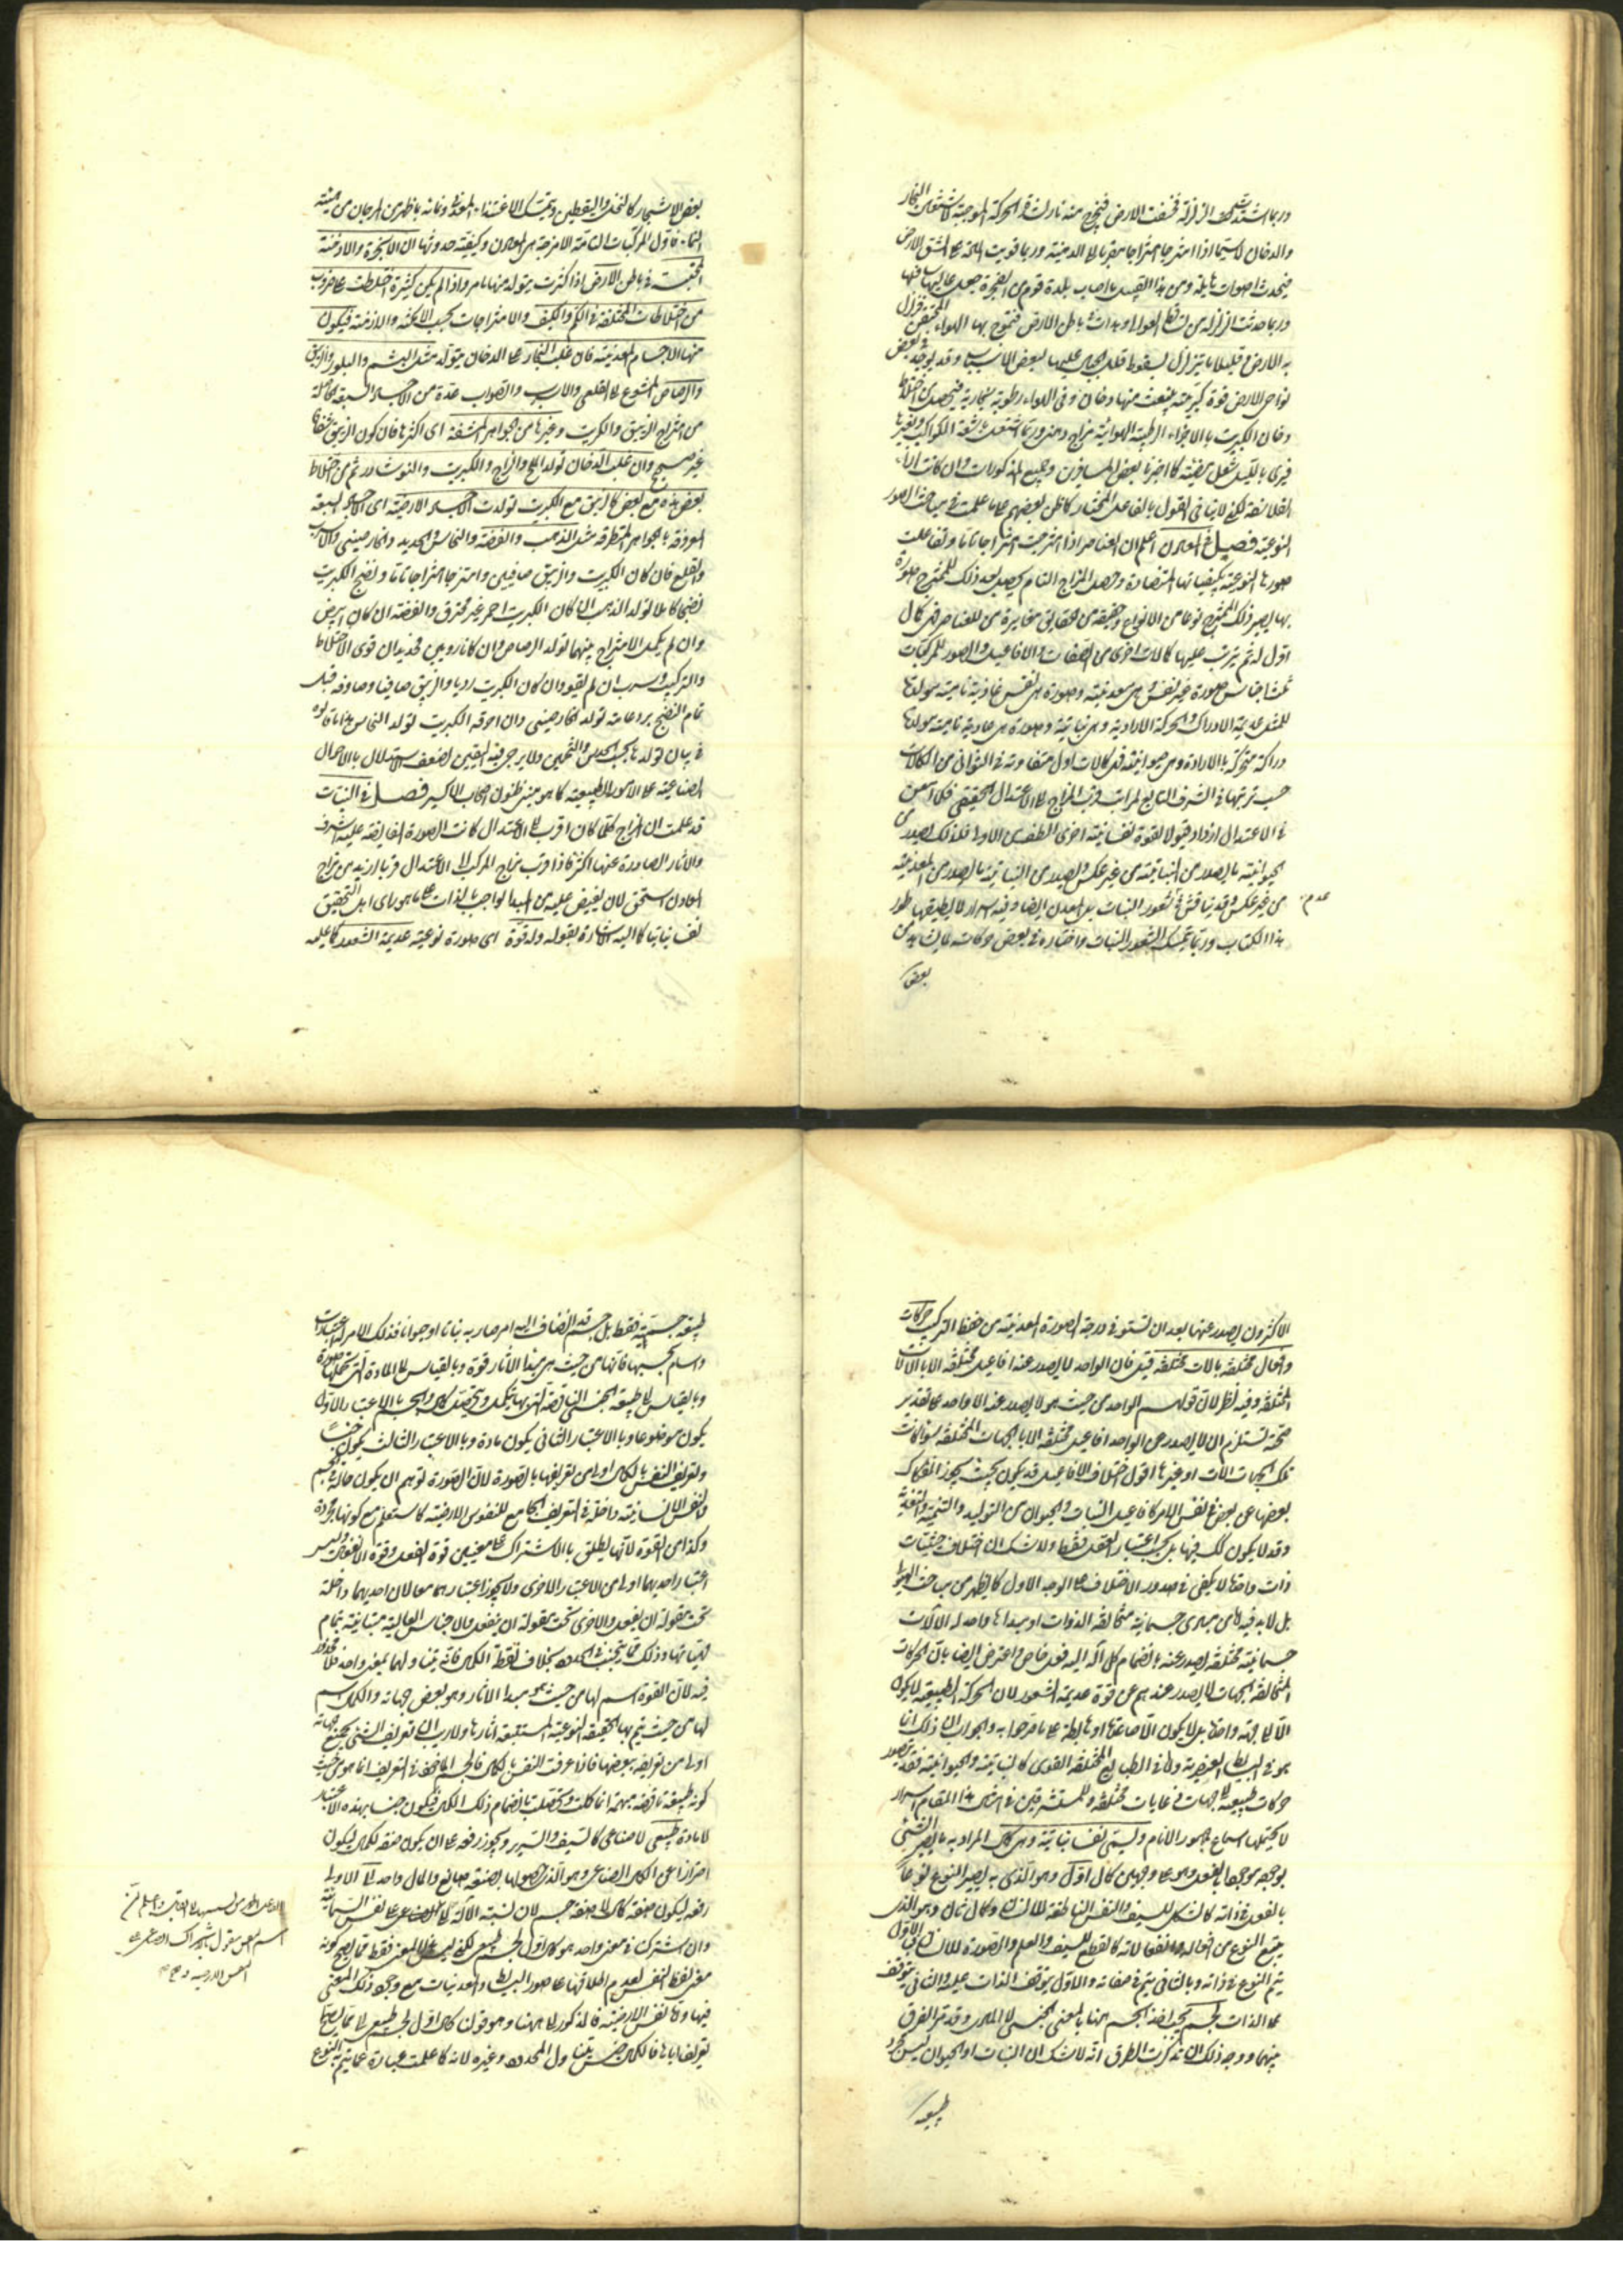 وربما اشتدت الزلزلة فخسفت الارض فيخرج منه نار لشدة الحركة الموجبة لاشتعال البخار
والدخان لا سيما اذا امتزجا امتزاجا مقربا الى الدهنية وربما قويت المادة على شق الارض
فيحدث اصوات هايلة ومن هذا القبيل ما اصاب بلدة قوم من الفجرة جعل عاليها سافلها
وربما حدثت الزلزلة من تساقط العوالى وهدات فى باطن الارض فيتموج بها الهواء المحتقن فيزلزل
به الارض وقليلا ما يتزلزل بسقوط قلل الجبال عليها لبعض الاسباب وقد يوجد فى بعض
نواحى الارض قوة كبريتية ينبعث منها دخان وفى الهواء رطوبة بخارية فيحصل من اختلاط
دخان الكبريت بالاجزاء الرطبة الهوائية مزاج دهنى وربما اشتعل باشعة الكواكب وبغيرها
فيرى بالليل شعل مضيئة كما اخبرنا بعض المسافرين وجميع المذكورات وان كانت اراء
الفلاسفة لكن لا ينافى القول بالفاعل المختار كما ظن بعضهم على ما علمت فى مباحث الصور
النوعية فصل فى المعادن اعلم ان العناصر اذا امتزجت امتزاجا تاما وتفاعلت
صورها النوعية بكيفياتها المتضادة وحصل المزاج التام يحصل بعد ذلك للممتزج صورة
بها يصير ذلك الممتزج نوعا من الانواع وحقيقة من الحقايق مغايرة للعناصر فى كمال
اول له ثم يترتب عليها كمالات اخرى من الصفات والافاعيل والصور للمركبات
ثلثة اجناس صورة غير نفس وهى معدنية وصورة هى نفس غاذية نامية مولدة
للمثل عديمة الادراك والحركة الارادية وهى نباتية وصورة هى غاذية نامية مولدة
دراكة متحركة بالارادة وهى حيوانية فى كمالات اول متفاوتة فى الثوانى من الكمالات
حسب ترتبها فى الشرف التابع لمراتب قرب المزاج الى الاعتدال الحقيقى فكلما امعن
فى الاعتدال ازداد قبولا لقوة نفسانية اخرى الطف من الاولى فلذلك يصدر من
الحيوانية ما يصدر من النباتية من غير عكس ويصدر من النباتية ما يصدر من المعدنية
من غير عكس وقد يناقش فى شعور النبات بل المعدن ايضا وفيه اسرار لا يطيقها طور
هذا الكتاب وربما يتمسك لشعور النبات واختياره فى بعض حركاته بما يشاهد من
عدم
بعض
بعض الاشجار كالنخل واليقطين ويتمسك الاغتذاء والنمو ونمائه بما ظهر من المرجان من هيئته
النماء فاول المركبات التامة الامزجة هى المعادن وكيفية حدوثها ان الابخرة والادخنة
المحتبسة فى باطن الارض اذا كثرت يتولد منها ما مر واذا لم يكن كثيرة اختلطت على ضروب
من اختلاطات المختلفة فى الكم والكيف والامتزاجات بحسب الامكنة والازمنة فيكون
منها الاجسام المعدنية فان غلب البخار على الدخان يتولد مثل اليشم والبلور والزيبق
والرصاص المتنوع الى القلعى والاسرب والصواب عدة من الاجساد السبعة الحاصلة
من امتزاج الزيبق والكبريت وغيرها من الجواهر المشفة اى اكثرها فان كون الزيبق شفافا
غير صحيح وان غلب الدخان تولد الملح والزاج والكبريت والنوشادر ثم من اختلاط
بعض هذه مع بعض كالزيبق مع الكبريت تولدت الاجساد الارضية اى الاجساد السبعة
المعروفة بالجواهر المتطرقة مثل الذهب والفضة والنحاس والحديد والخارصينى والاسرب
والقلع فان كان الكبريت والزيبق صافيين وامتزجا امتزاجا تاما ونضج الكبريت
نضجا كاملا تولد الذهب ان كان الكبريت احمر غير محترق والفضة ان كان ابيض
وان لم يكمل الامتزاج بينهما تولد الرصاص وان كانا رديين فحديد ان قوى الاختلاط
والتركيب واسرب ان لم يقو وان كان الكبريت رديا والزيبق صافيا وصادفه قبل
تمام النضج برد عاقد تولد الخارصينى وان احرقه الكبريت تولد النحاس هذا ما قالوه
فى بيان تولدها بحسب الحدس والتخمين ولا يرجى فيه اليقين لضعف الاستدلال بالاحوال
الصناعية على الامور الطبيعية كما هو مبنى ظنون اصحاب الاكسير فصل فى النبات
قد علمت ان المزاج كلما كان اقرب الى الاعتدال كانت الصورة الفايضة عليه اشرف
والاثار الصادرة عنها اكثر فاذا قرب مزاج المركب الى الاعتدال قربا ازيد من مزاج
المعادن استحق لان يفيض عليه من المبدا الواجب بالذات على ما هو راى اهل التحقيق
نفسا نباتيا كما اليه الاشارة بقوله وله قوة اى صورة نوعية عديمة الشعور كما عليه
الاكثرون يصدر عنها بعد ان تستوفى درجة الصورة المعدنية من حفظ التركيب حركات
وافعال مختلفة بالات مختلفة قيل فان الواحد لا يصدر عنه افاعيل مختلفة الا بالالات
المختلفة وفيه نظر لان قولهم الواحد من حيث هو لا يصدر عنه الا واحد على تقدير
صحته يستلزم ان لا يصدر عن الواحد افاعيل مختلفة الا بالجهات المختلفة سواء كانت
تلك الجهات الات او غيرها اقول اختلاف الافاعيل قد يكون بحيث يجوز انفكاك
بعضها عن بعض فى نفس الامر كافاعيل النبات والحيوان من التوليد والتنمية والتغذية
وقد لا يكون كك فيها بل بحسب اعتبار العقل فقط ولا شك ان اختلاف حيثيات
ذات واحدة لا يكفى فى صدور الاختلاف على الوجه الاول كما يظهر من مباحث الهيولى
بل لابد فيه من مبادى جسمانية متخالفة الذوات او مبدا ما واحد له الات
جسمانية مختلفة يصدر عنه بانضمام كل آلة اليه فعل خاص واعترض ايضا بان الحركات
المتخالفة الجهات لا يصدر عندهم عن قوة عديمة الشعور لان الحركة الطبيعية لا يكون
الا الى جهة واحدة بل لا يكون الا صاعدة او هابطة على ما صرحوا به والجواب ان ذلك انما
هو فى البسايط العنصرية واما فى الطبايع المختلفة القوى كالنباتية والحيوانية فقد يتصور
حركات طبيعية الى جهات فى غايات مختلفة وللمستشرقين فى امثال هذا المقام اسرار
لا يحتملها اسماع جمهور الانام ويسمى نفسا نباتية وهى كمال المراد به ما يصير الشىء
بوجه موجودا بالفعل وهو على وجهين كمال اول وهو الذى به يصير النوع نوعا
بالفعل فى ذاته كالشكل للسيف والنفس الناطقة للانسان وكمال ثان وهو الذى
يتبع النوع من افعاله وانفعالاته كالقطع للسيف والعلم والصورة للانسان فبالاول
يتم النوع فى ذاته وبالثانى يتم فى صفاته والاول يتوقف الذات عليه والثانى يتوقف
على الذات لجسم يجب اخذ الجسم ههنا بالمعنى الجنسى لا المادى وقد مر الفرق
بينهما ووجه ذلك ان تذكرت الطرق انه لا شك ان النبات او الحيوان ليس مجرد
طبيعة
طبيعة جسمية فقط بل جسم قد انضاف اليه امر صار به نباتا او حيوانا فذلك الامر له اعتبارات
واسام بحسبها فانها من حيث هى مبدا الاثار قوة وبالقياس الى المادة التى تحملها صورة
وبالقياس الى طبيعة الجنس الناقصة التى بها يتكمل ويتحصل كمال والجسم بالاعتبار الاول
يكون موضوعا وبالاعتبار الثانى يكون مادة وبالاعتبار الثالث يكون جنسا
وتعريف النفس بالكمال اولى من تعريفها بالصورة لان الصورة توهم ان يكون حالة فى الجسم
والنفس الانسانية داخلة فى التعريف الجامع للنفوس الارضية كما ستعلم مع كونها مجردة
وكذا من القوة لانها يطلق بالاشتراك على معنيين قوة الفعل وقوة الانفعال وليس
اعتبار احديهما اولى من الاعتبار الاخرى ولا يجوز اعتبارهما معا لان احديهما داخلة
تحت مقولة ان يفعل والاخرى تحت مقولة ان ينفعل والاجناس العالية متباينة بتمام
مهياتها وذلك مما يتجنب فى الحدود بخلاف لفظة الكمال فانه يتناولهما بمعنى واحد فلا محذور
فيه لان القوة اسم لها من حيث هو مبدا الاثار وهو بعض جهاته والكمال اسم
لها من حيث يتم بها الحقيقة النوعية المستتبعة اثارها ولا ريب ان تعريف الشىء بجميع جهاته
اولى من تعريفه ببعضها فاذا عرفت النفس بالكمال فالجسم الماخوذ فى التعريف انما هو من حيث
كونه طبيعة ناقصة مبهمة انما كملت وتحصلت بانضمام ذلك الكمال فيكون جنسا بهذه الاعتبار
لا مادة طبيعى لا صناعى كالسيف والسرير ويجوز رفعه على ان يكون صفة لكمال ليكون
احترازا عن الكمال الصناعى وهو الذى حصولها بصنعة صانع والمال واحد الى الاولى
رفعه ليكون صفة كمال لا صفة جسم لان نسبة الآلة الى
وان اشترك فى معنى واحد هو كمال اول لجسم طبيعى لكنه ليس هذا المعنى فقط مما يصح كونه
معنى لفظ النفس لعدم اطلاقها على صور البسايط والمعدنيات مع وجود ذلك المعنى
فيها واما نفس الارضية فالمذكور ههنا وهو قولنا كمال اول لجسم طبيعى الى مما يصلح
تعريفا لها فالكمال جنس يتناول المحدود وغيره لانه كما علمت عبارة عما يتم به النوع